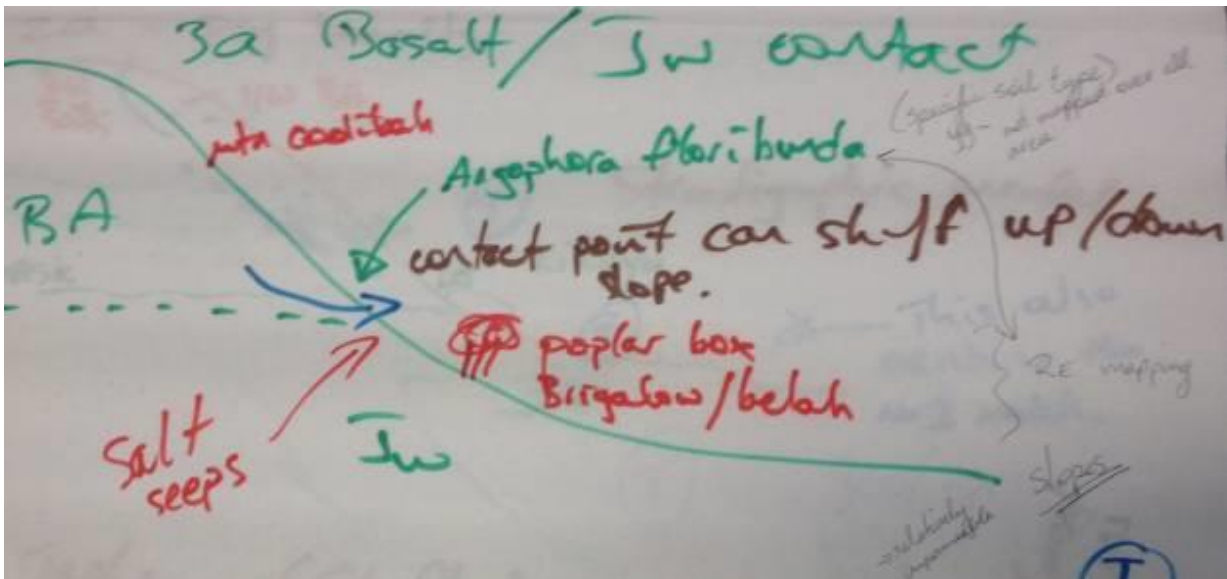 3a Basalt / Jw contact
(specific soil type)
not mapped over all
area
mtn coolibah
Angophora floribunda
BA
contact point can shift up/down
slope.
poplar box
Brigalow/belah
This also
RE mapping
Salt
seeps
Jw
slopes
→ relatively
impermeable
I